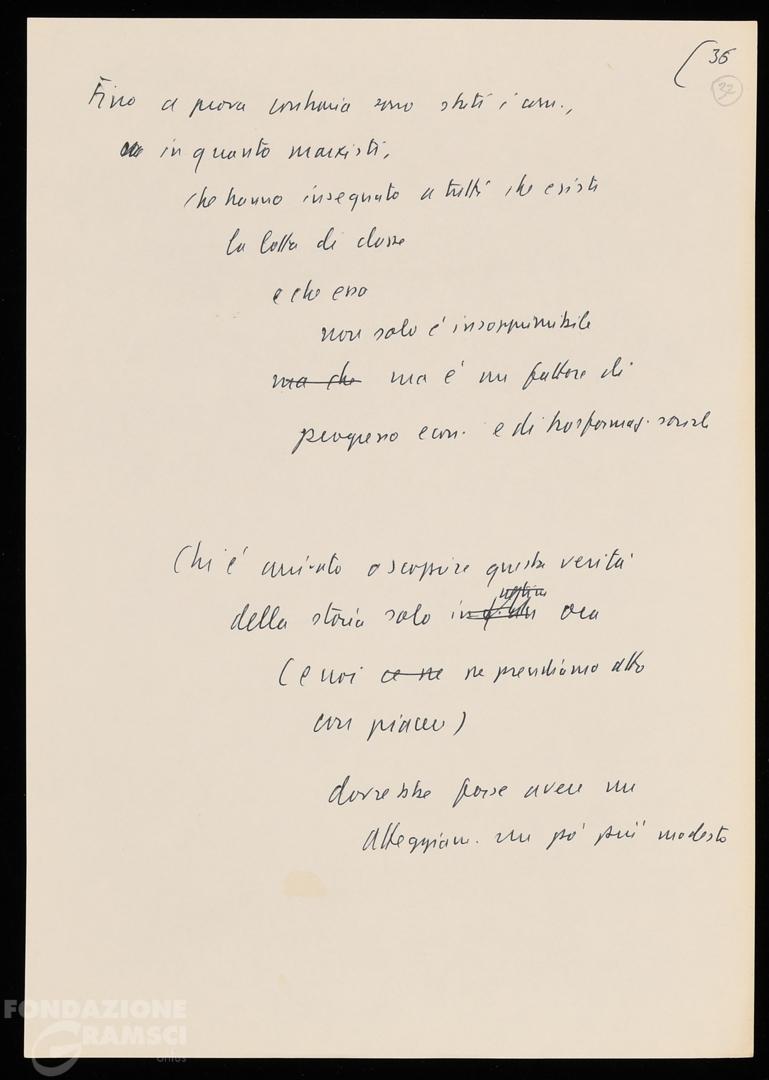 36
32
Fino a prova contraria sono stati i com.,
in quanto marxisti,
che hanno insegnato a tutti che esiste
la lotta di classe
e che essa
non solo è insopprimibile
ma che ma è un fattore di
progresso econ. e di trasformaz. sociale
Chi è arrivato a scoprire questa verità
della storia solo ora
(e noi ce ne ne prendiamo atto
con piacere)
dovrebbe forse avere un
atteggiam. un po' più modesto
FONDAZIONE
GRAMSCI
onlus